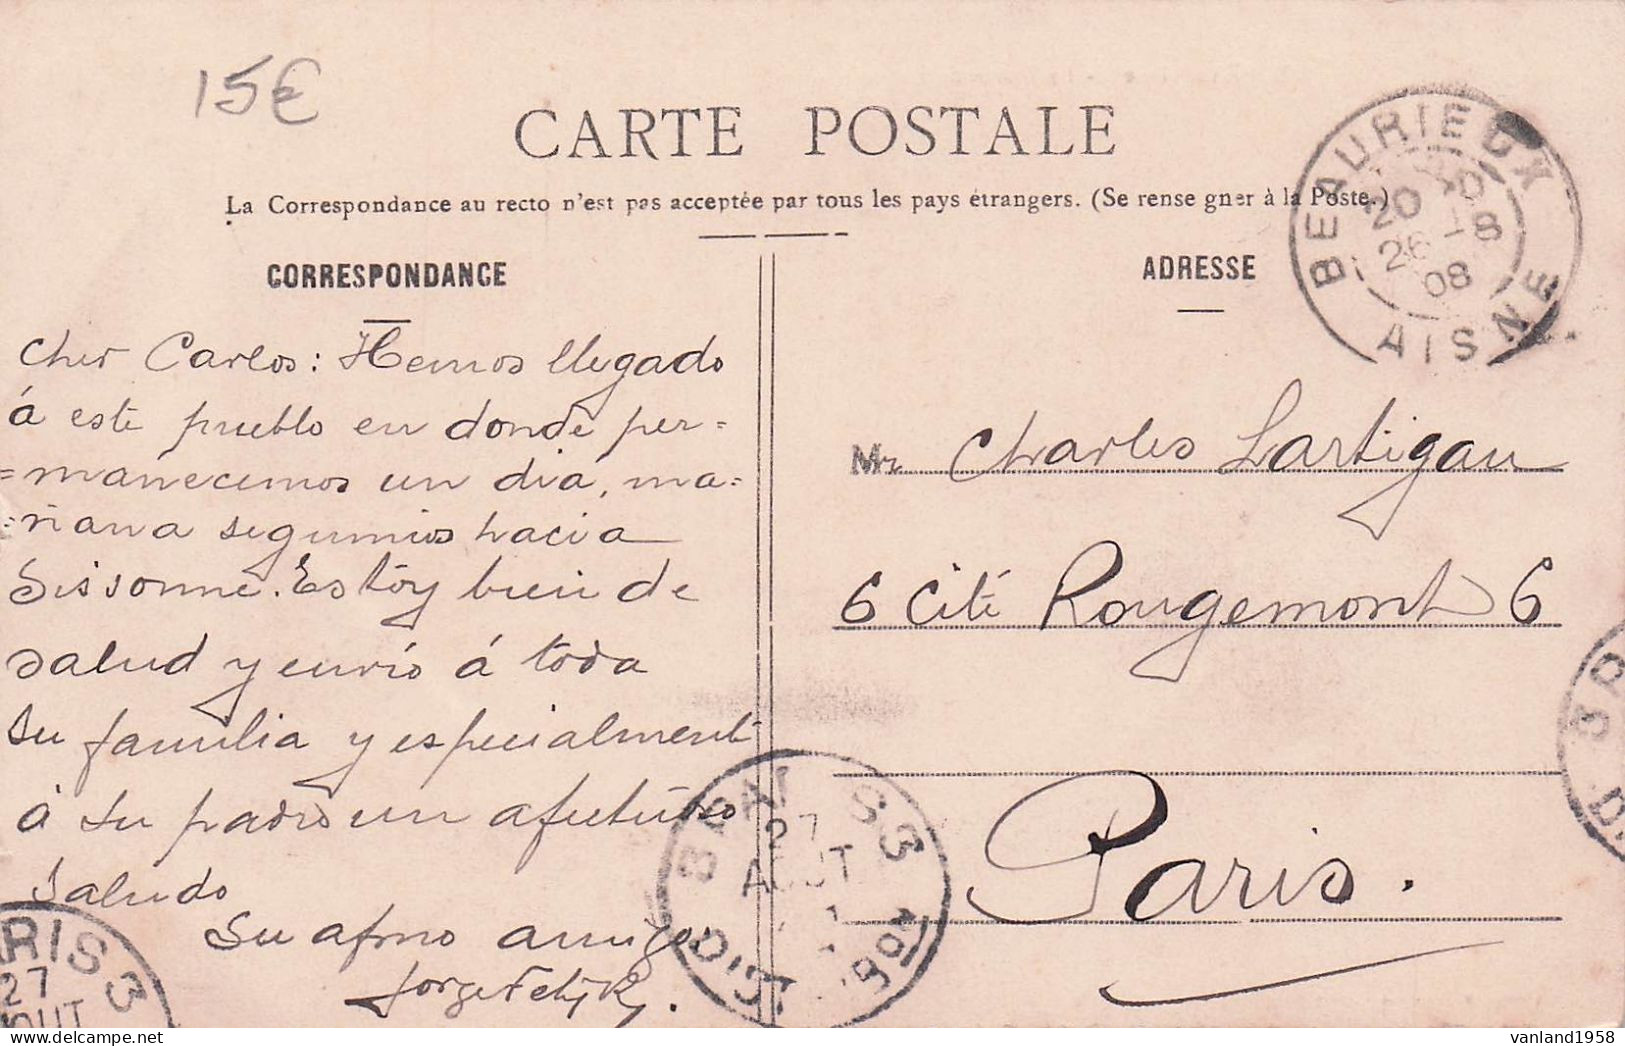 15€
CARTE POSTALE
La Correspondance au recto n'est pas acceptée par tous les pays étrangers. (Se rense gner à la Poste.)
CORRESPONDANCE
Cher Carlos: Hemos llegado
á este pueblo en donde per=
=manecemos un dia, ma=
=ñana seguimos hacia
Sissonne. Estoy bien de
salud y envío á toda
su familia y especialment
á su padre un afectuoso
saludo
Su afmo amigo
Jorge
ADRESSE
Mr Charles Lartigau
6 Cité Rougemont 6
Paris.
BEAURIEUX
20 30
26 -8
08
AISNE
PARIS 3
27
AOUT
DISTRIBON
ARIS 3
27
OUT
vanland1958